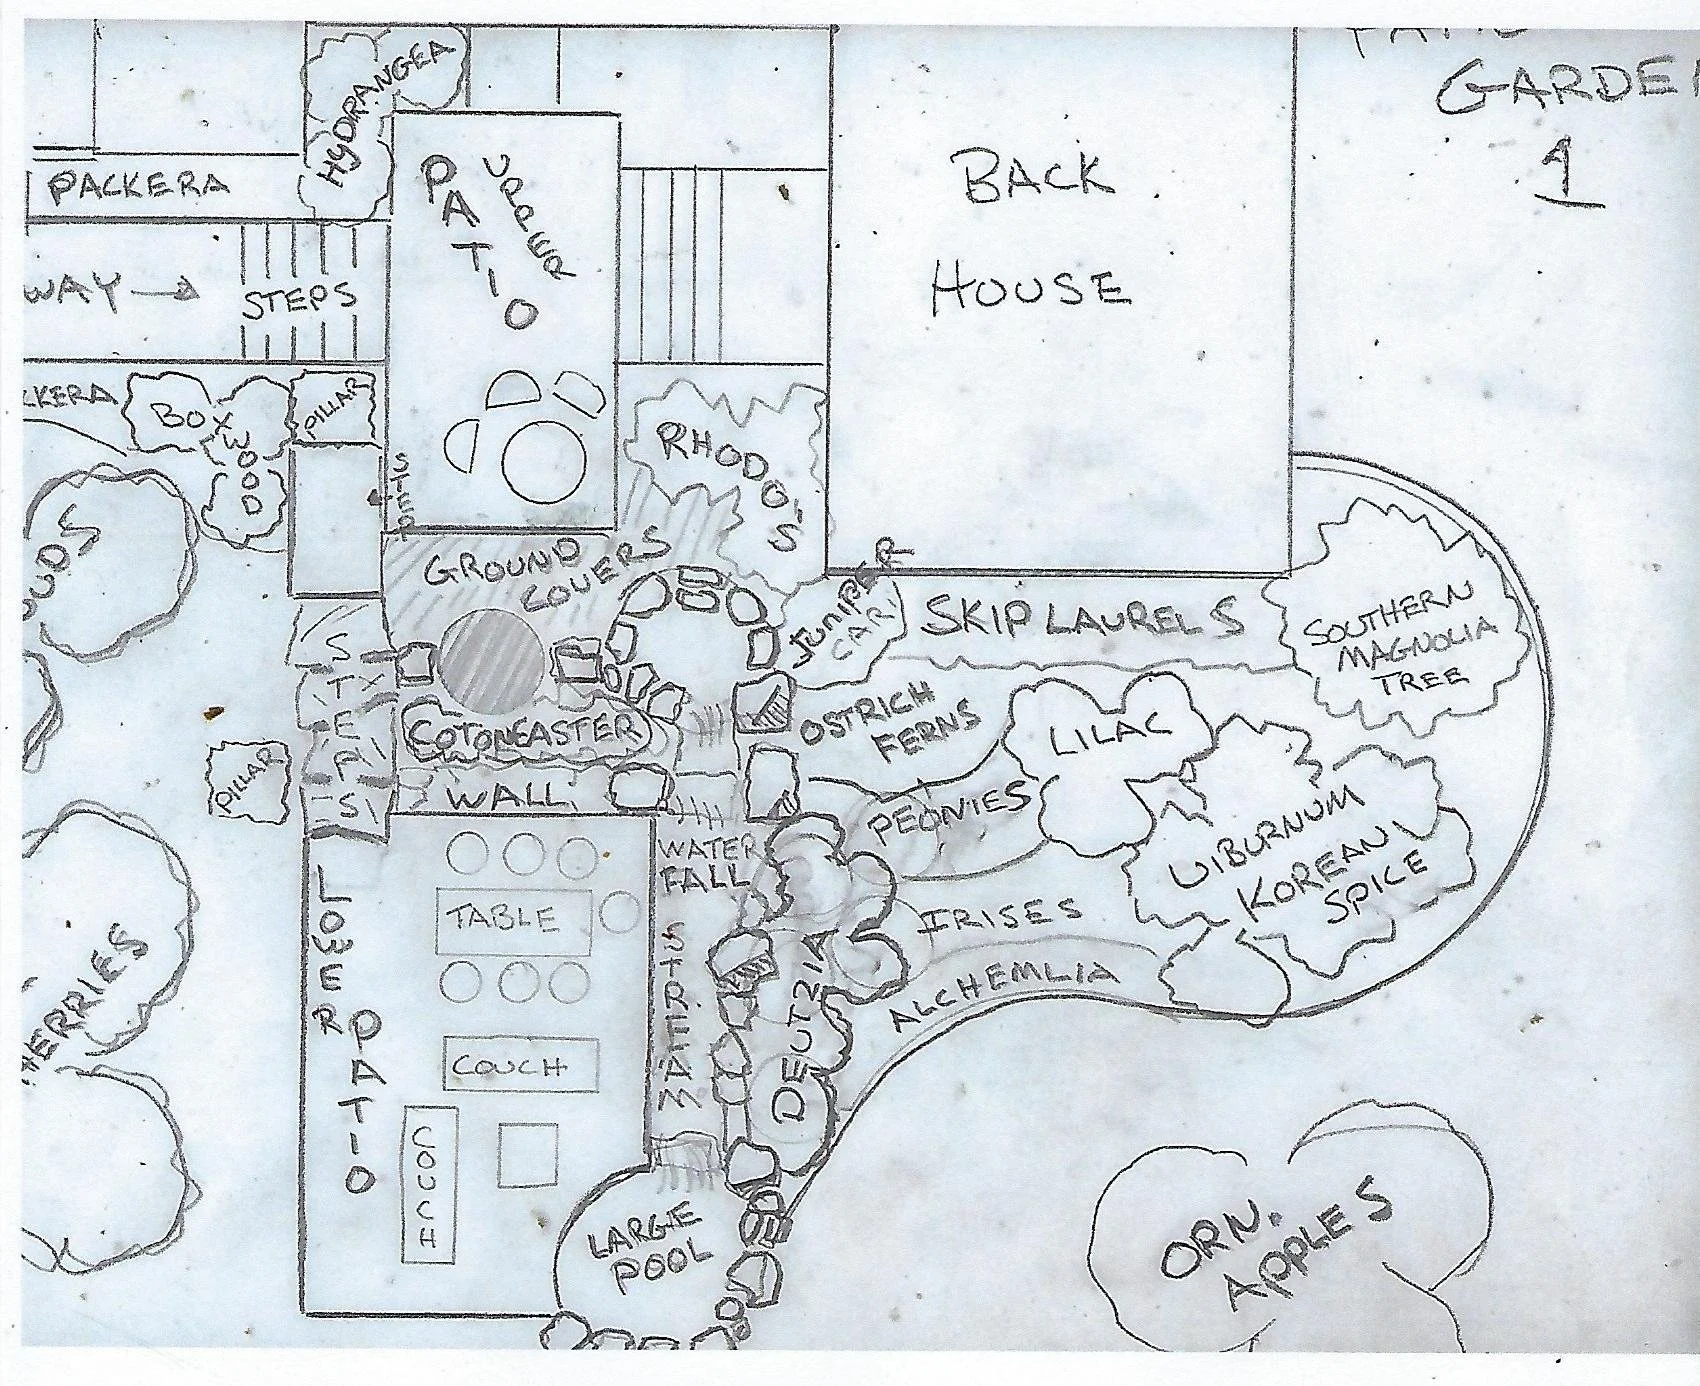 GARDEN
1
HYDRANGEA
PACKERA
UPPER
PATIO
BACK
HOUSE
WAY →
STEPS
BOXWOOD
PILLAR
STEP
RHODO'S
GROUND
COVERS
JUNIPER
SKIP LAURELS
SOUTHERN
MAGNOLIA
TREE
STEPS
COTONEASTER
OSTRICH
FERNS
LILAC
PILLAR
WALL
PEONIES
VIBURNUM
KOREAN
SPICE
WATER
FALL
TABLE
IRISES
LOWER
PATIO
STREAM
DEUTZIA
ALCHEMLIA
COUCH
COUCH
LARGE
POOL
ORN.
APPLES